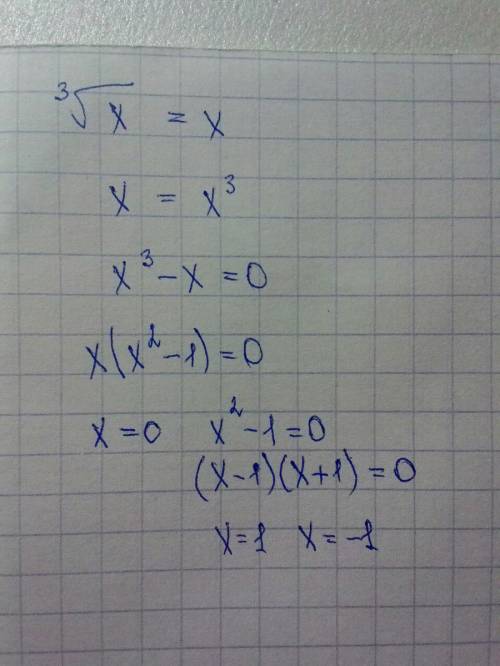 ∛x = x
x = x³
x³ − x = 0
x(x² − 1) = 0
x = 0 x² − 1 = 0
(x − 1)(x + 1) = 0
x = 1 x = −1